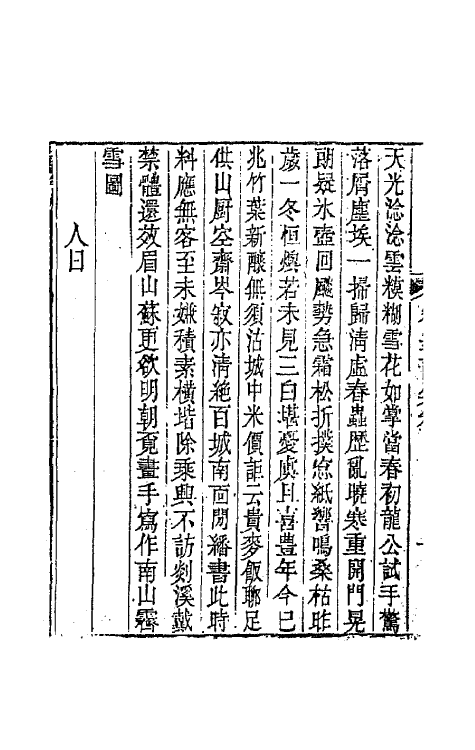 天光淰淰雲糢糊雪花如掌當春初龍公試手驚
落屑塵埃一掃歸清虛春蟲歷亂曉寒重開門晃
朗疑氷壺回飈勢急霜松折撲窻紙響鳴桑枯昨
歲一冬恒燠若未見三白堪憂虞且喜豊年今已
兆竹葉新釀無須沽城中米價詎云貴麥飯聊足
供山厨空齋岑寂亦清絶百城南面閒繙書此時
料應無客至未嫌積素橫堦除乘輿不訪剡溪戴
禁體還效眉山蘇更欲明朝覓畫手寫作南山霽
雪圖
人日